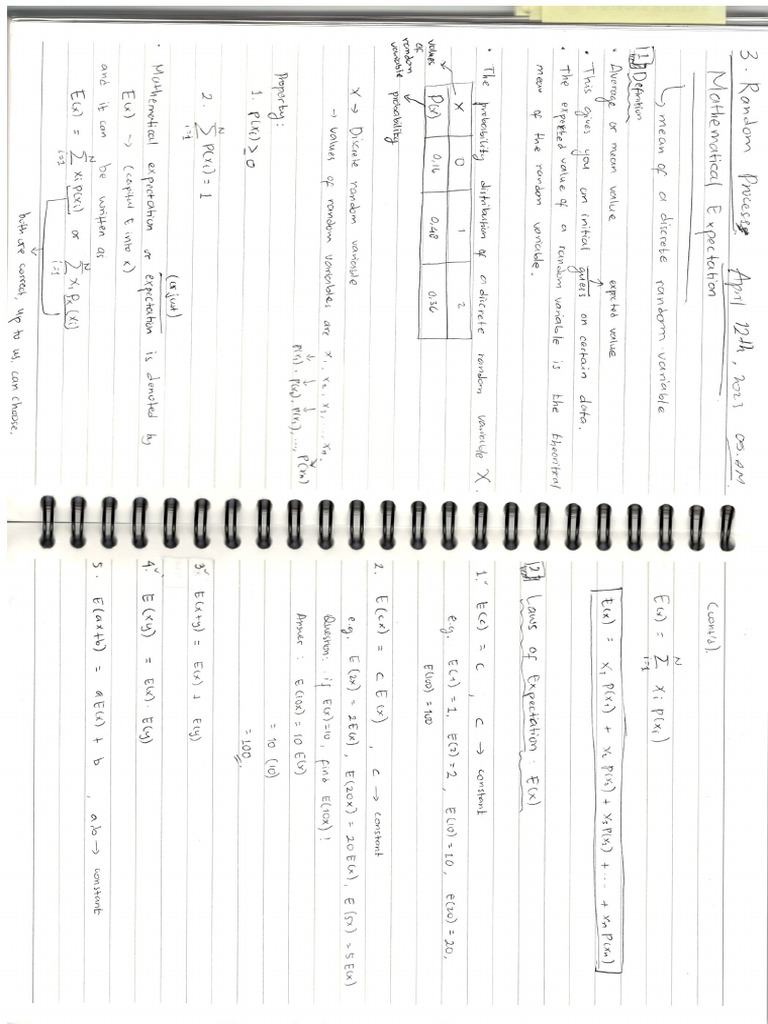 3. Random Process April 12th, 2023 05.AM.
Mathematical Expectation
↳ mean of a discrete random variable
1 Definition
• Average or mean value expected value
• This gives you an initial guess on certain data.
• The expected value of a random variable is the theoritical
mean of the random variable.
• The probability distribution of a discrete random variable X.
X 0 1 2
P(x) 0,16 0,48 0.36
values
of
random
variable probability
X → Discrete random variable
→ values of random variables are x1, x2, x3, ..., xn.
P(x1), P(x2), P(x3), ..., P(xn)
Property:
1. P(xi) ≥ 0
2. N∑i=1 P(xi) = 1
(or just)
• Mathematical expectation or expectation is denoted by
E(x) → (capital E into x)
and it can be written as
E(x) = N∑i=1 xi p(xi) or N∑i=1 xi px(xi)
both are correct, up to us, can choose.
(cont'd).
E(x) = N∑i=1 xi p(xi)
E(x) = x1 P(x1) + x2 P(x2) + x3 P(x3) + ... + xn P(xn)
2 Laws of Expectation: E(x)
1. E(c) = c , c → constant
e.g. E(1) = 1, E(2) = 2, E(10) = 10, E(20) = 20,
E(100) = 100
2. E(cx) = c E(x) , c → constant
e.g. E(2x) = 2E(x), E(20x) = 20E(x), E(5x) = 5E(x)
Question: if E(x)=10, find E(10x)!
Answer: E(10x) = 10 E(x)
= 10 (10)
= 100
3. E(x+y) = E(x) + E(y)
4. E(xy) = E(x) . E(y)
5. E(ax+b) = aE(x) + b , a,b → constant